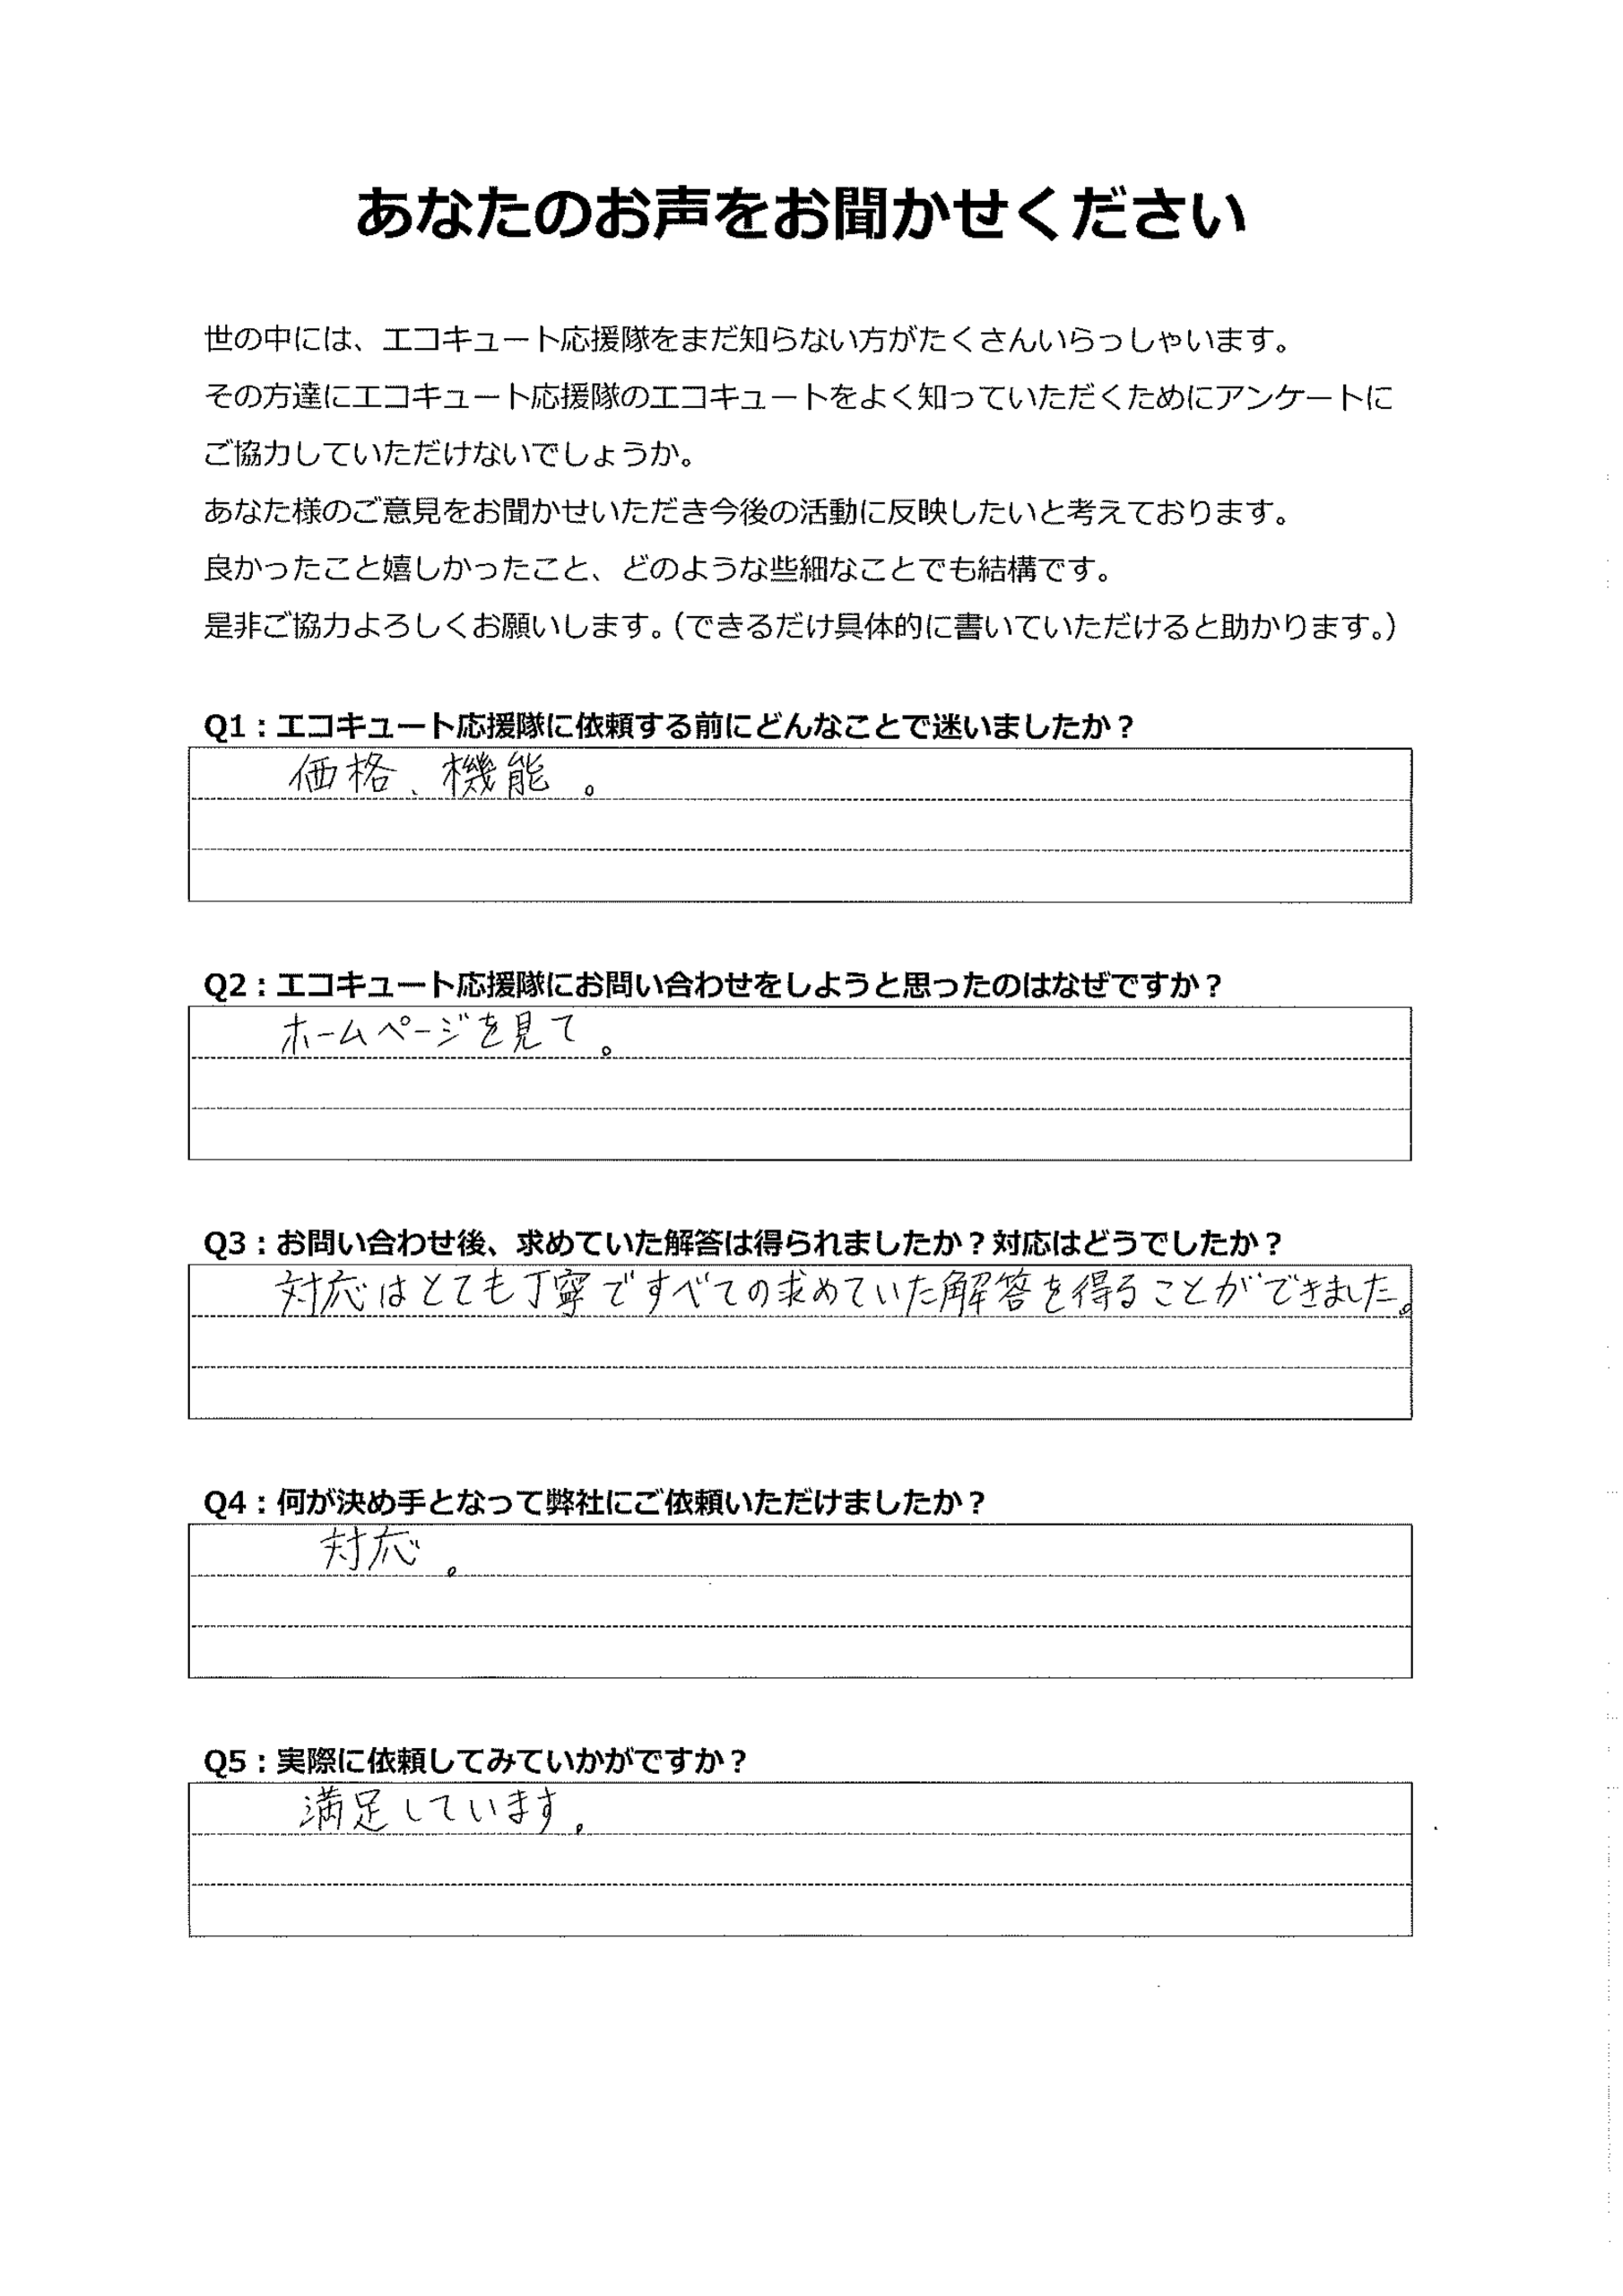 あなたのお声をお聞かせください
世の中には、エコキュート応援隊をまだ知らない方がたくさんいらっしゃいます。
その方達にエコキュート応援隊のエコキュートをよく知っていただくためにアンケートに
ご協力していただけないでしょうか。
あなた様のご意見をお聞かせいただき今後の活動に反映したいと考えております。
良かったこと嬉しかったこと、どのような些細なことでも結構です。
是非ご協力よろしくお願いします。（できるだけ具体的に書いていただけると助かります。）
Q1：エコキュート応援隊に依頼する前にどんなことで迷いましたか？
価格、機能。
Q2：エコキュート応援隊にお問い合わせをしようと思ったのはなぜですか？
ホームページを見て。
Q3：お問い合わせ後、求めていた解答は得られましたか？対応はどうでしたか？
対応はとても丁寧ですべての求めていた解答を得ることができました。
Q4：何が決め手となって弊社にご依頼いただけましたか？
対応。
Q5：実際に依頼してみていかがですか？
満足しています。